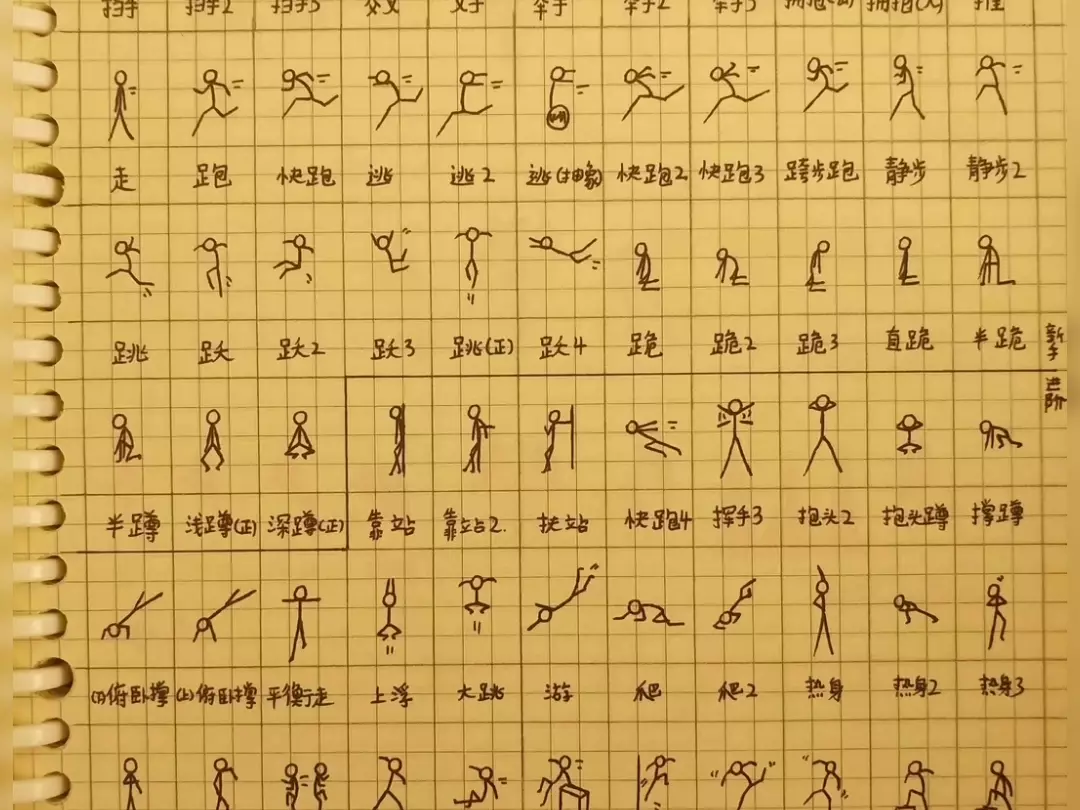 走 跑 快跑 逃 逃2 逃(抽象) 快跑2 快跑3 跨步跑 静步 静步2
跳 跃 跃2 跃3 跳(正) 跃4 跪 跪2 跪3 直跪 半跪
新手
进阶
半蹲 浅蹲(正) 深蹲(正) 靠站 靠站2. 扶站 快跑4 挥手3 抱头2 抱头蹲 撑蹲
(下)俯卧撑 (上)俯卧撑 平衡行走 上浮 大跳 游 爬 爬2 热身 热身2 热身3